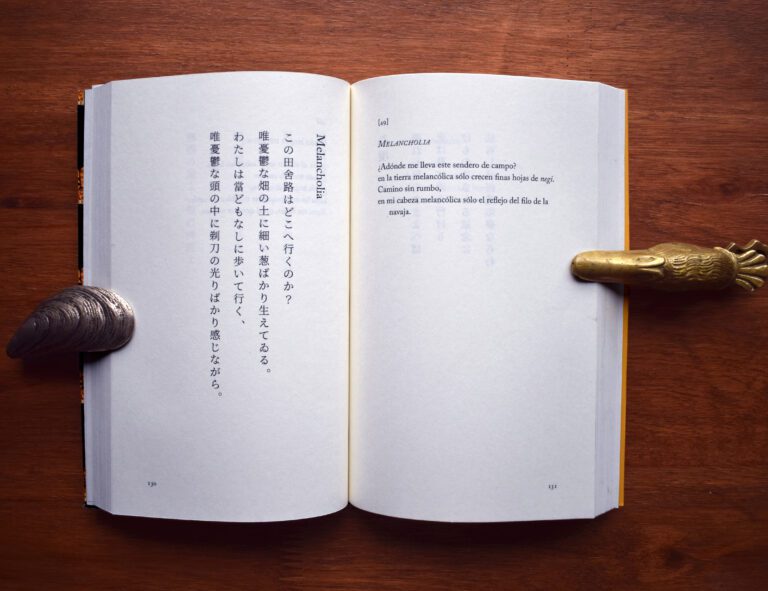 Melancholia
この田舎路はどこへ行くのか？
唯憂鬱な畑の土に細い葱ばかり生えてゐる。
わたしは當どもなしに歩いて行く、
唯憂鬱な頭の中に剃刀の光りばかり感じながら。
130
[49]
Melancholia
¿Adónde me lleva este sendero de campo?
en la tierra melancólica sólo crecen finas hojas de negi.
Camino sin rumbo,
en mi cabeza melancólica sólo el reflejo del filo de la
navaja.
131